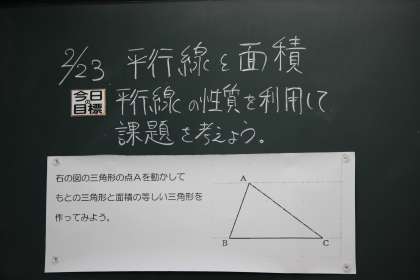 2/23 平行線と面積
今日の目標
平行線の性質を利用して
課題を考えよう。
右の図の三角形の点Aを動かして
もとの三角形と面積の等しい三角形を
作ってみよう。
A
B
C